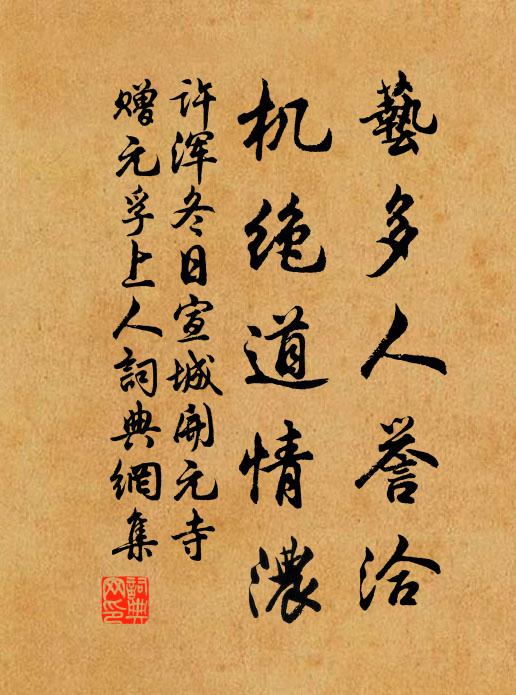 藝多人誉洽
机绝道情濃
许浑冬日宣城開元寺
赠元孚上人詞典網集
詞典网印